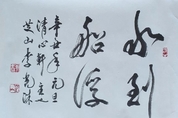 水到
船浮
辛丑年元旦
清心軒主人